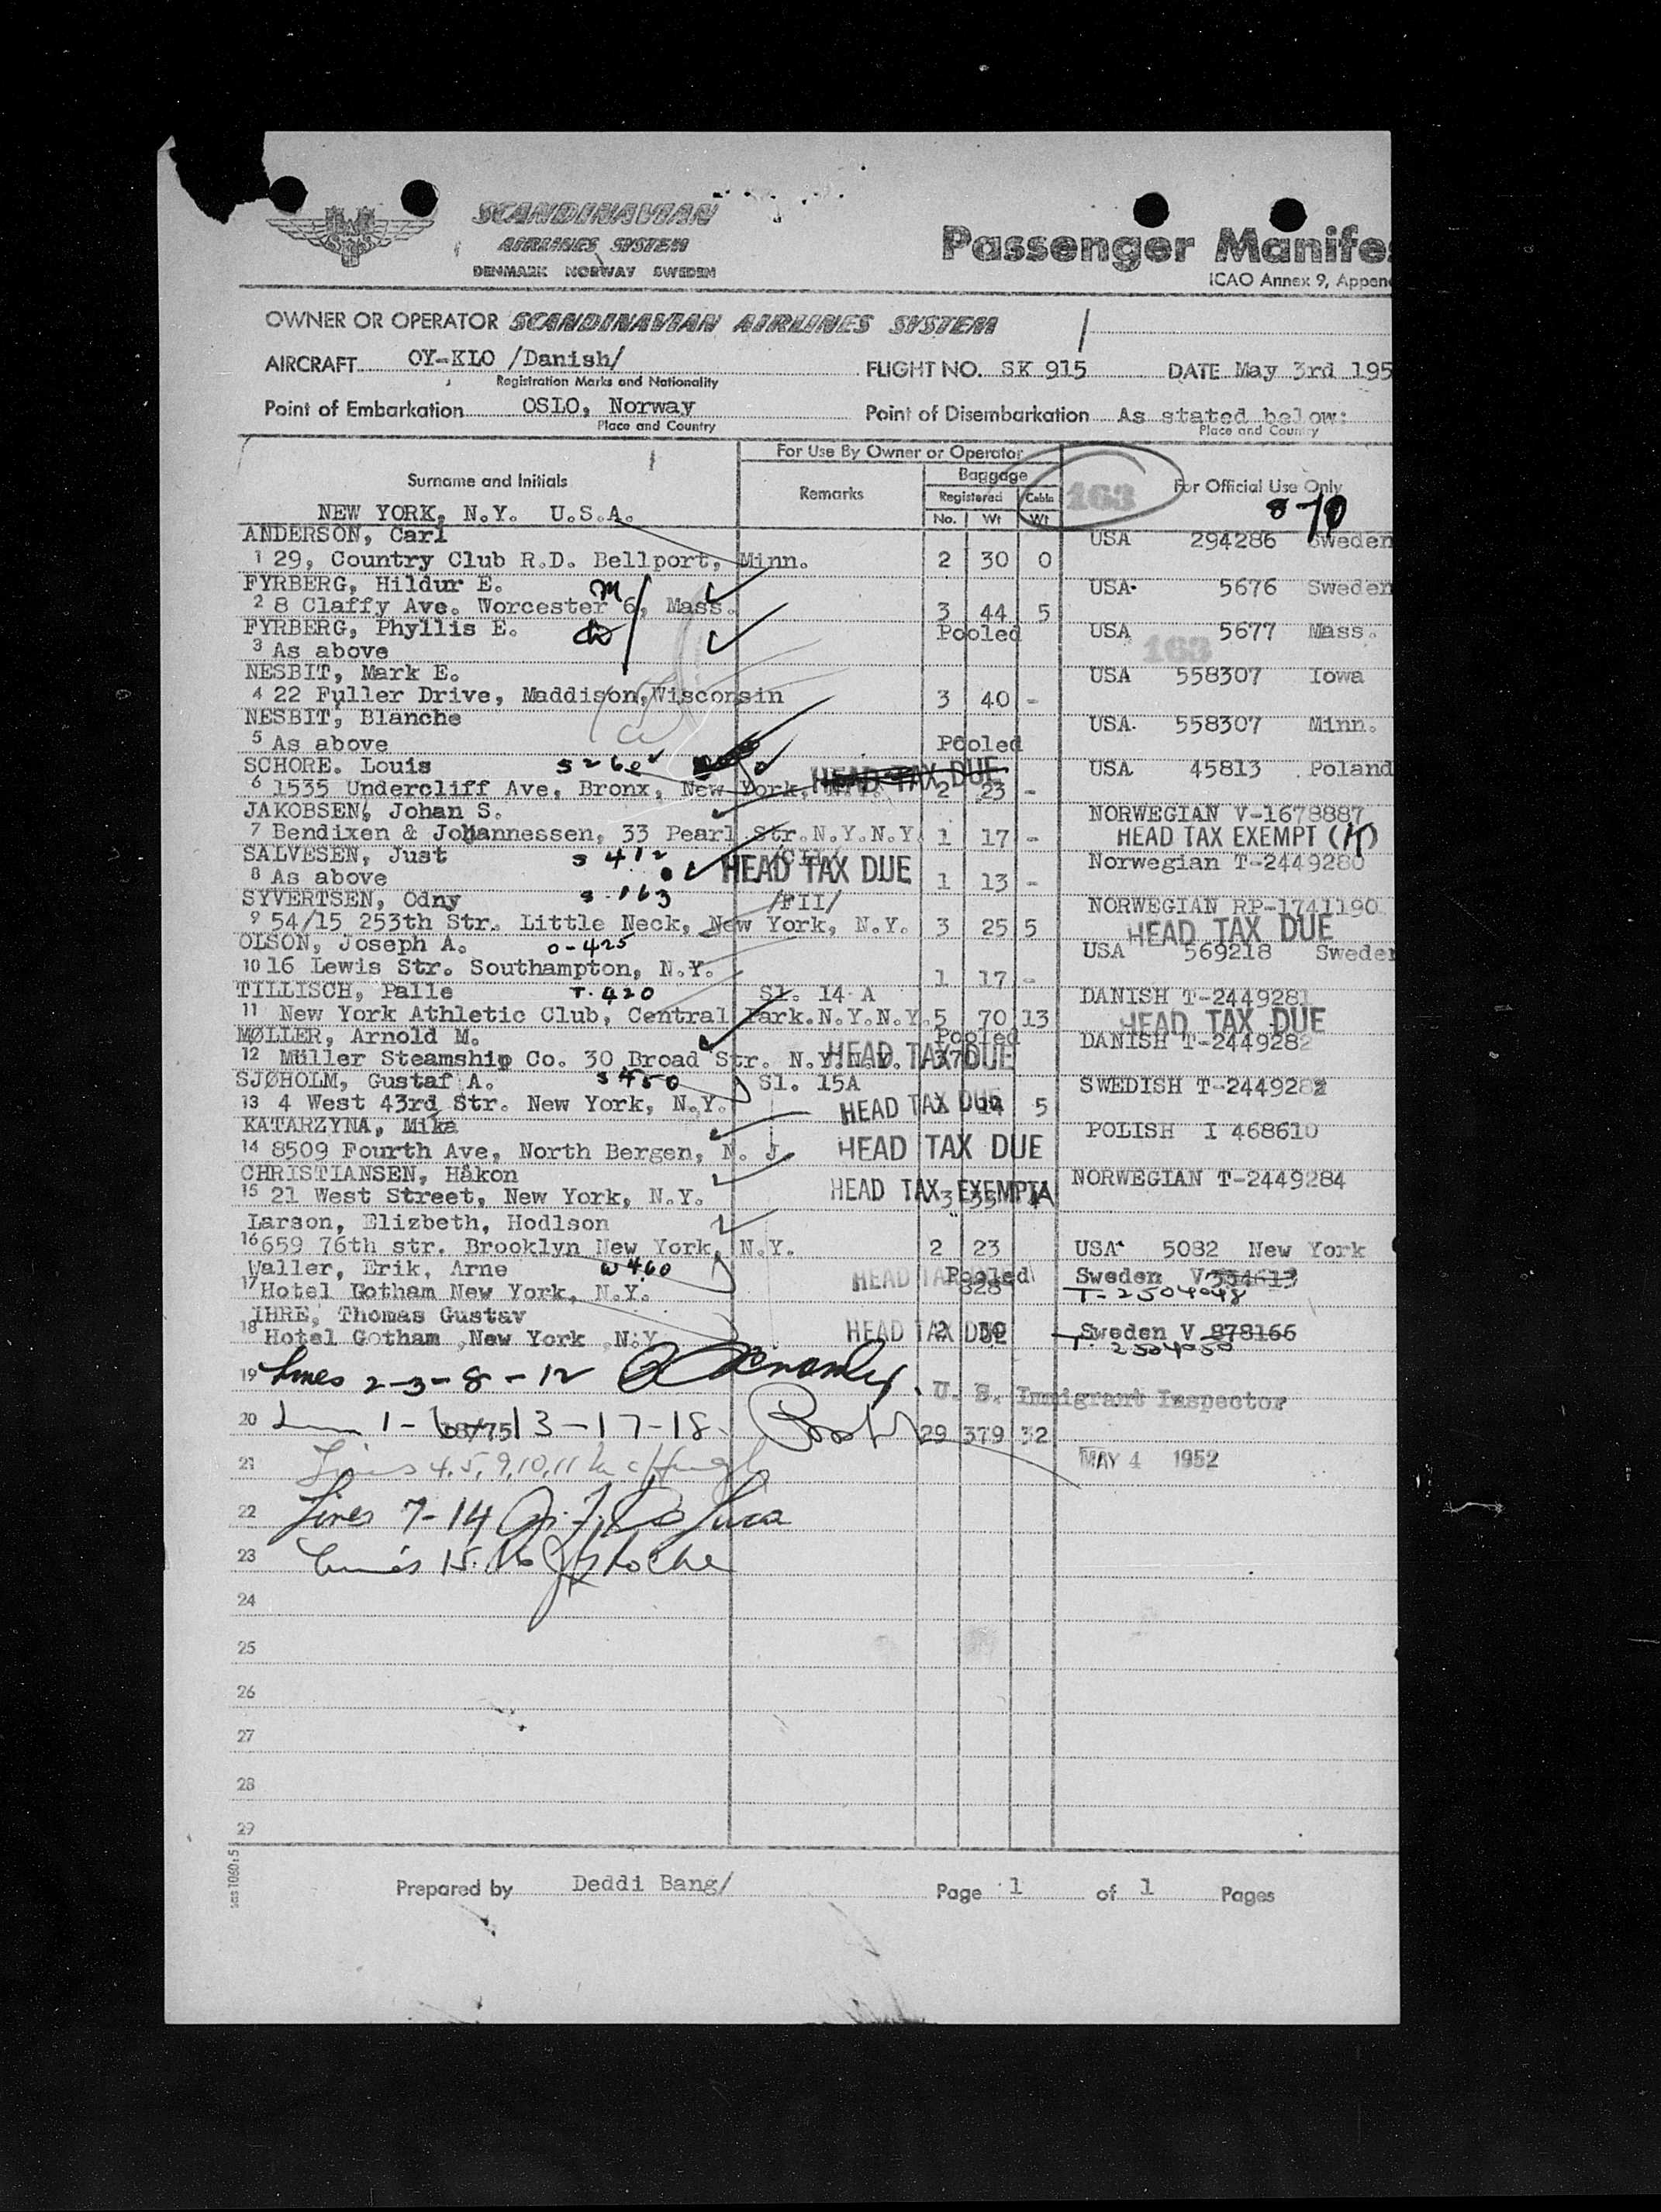 SCANDINAVIAN
AIRLINES SYSTEM
DENMARK NORWAY SWEDEN
Passenger Manifes
ICAO Annex 9, Append
OWNER OR OPERATOR SCANDINAVIAN AIRLINES SYSTEM
AIRCRAFT OY-KLO /Danish/ FLIGHT NO. SK 915 DATE May 3rd 195
Registration Marks and Nationality
Point of Embarkation OSLO, Norway Point of Disembarkation As stated below:
Place and Country Place and Country
For Use By Owner or Operator
Surname and Initials Remarks Baggage 163 For Official Use Only
Registered Cabin
No. Wt Wt
NEW YORK, N.Y. U.S.A.
ANDERSON, Carl USA 294286 Sweden
1 29, Country Club R.D. Bellport, Minn. 2 30 0
FYRBERG, Hildur E. USA 5676 Sweden
2 8 Claffy Ave. Worcester 6, Mass. 3 44 5
FYRBERG, Phyllis E. Pooled USA 5677 Mass.
3 As above 163
NESBIT, Mark E. USA 558307 Iowa
4 22 Fuller Drive, Maddison, Wisconsin 3 40 -
NESBIT, Blanche USA 558307 Minn.
5 As above Pooled
SCHORE. Louis HEAD TAX DUE USA 45813 Poland
6 1535 Undercliff Ave, Bronx, New York, 2 23 -
JAKOBSEN, Johan S. NORWEGIAN V-1678887
7 Bendixen & Johannessen, 33 Pearl Str.N.Y.N.Y. 1 17 - HEAD TAX EXEMPT
SALVESEN, Just S 412 Norwegian T-2449280
8 As above HEAD TAX DUE 1 13 -
SYVERTSEN, Odny S. 163 /FII/ NORWEGIAN RP-1741190
9 54/15 253th Str. Little Neck, New York, N.Y. 3 25 5 HEAD TAX DUE
OLSON, Joseph A. O-425 USA 569218 Sweden
10 16 Lewis Str. Southampton, N.Y. 1 17 -
TILLISCH, Palle T. 420 Sl. 14 A DANISH T-2449281
11 New York Athletic Club, Central Park.N.Y.N.Y. 5 70 13 HEAD TAX DUE
MØLLER, Arnold M. Pooled DANISH T-2449282
12 Müller Steamship Co. 30 Broad Str. N.Y.N.Y. HEAD TAX DUE
SJØHOLM, Gustaf A. S 450 Sl. 15A SWEDISH T-244928
13 4 West 43rd Str. New York, N.Y. HEAD TAX DUE 5
KATARZYNA, Mika POLISH I 468610
14 8509 Fourth Ave, North Bergen, N. J. HEAD TAX DUE
CHRISTIANSEN, Håkon NORWEGIAN T-2449284
15 21 West Street, New York, N.Y. HEAD TAX EXEMPT
Larson, Elizbeth, Hodlson
16 659 76th str. Brooklyn New York, N.Y. 2 23 USA 5082 New York
Waller, Erik, Arne W 460 HEAD TAX Pooled Sweden V 334613
17 Hotel Gotham New York, N.Y. 828 T-2504048
IHRE, Thomas Gustav
18 Hotel Gotham ,New York ,N.Y. HEAD TAX DUE Sweden V 878166
19 Lines 2-3-8-12
U. S. Immigrant Inspector
20 1-6-13-17-18 29 379 32
21 Lines 4, 5, 9, 10, 11 MAY 4 1952
22 Lines 7-14
23 15.16
24
25
26
27
28
29
sas 1060:5
Prepared by Deddi Bang/ Page 1 of 1 Pages